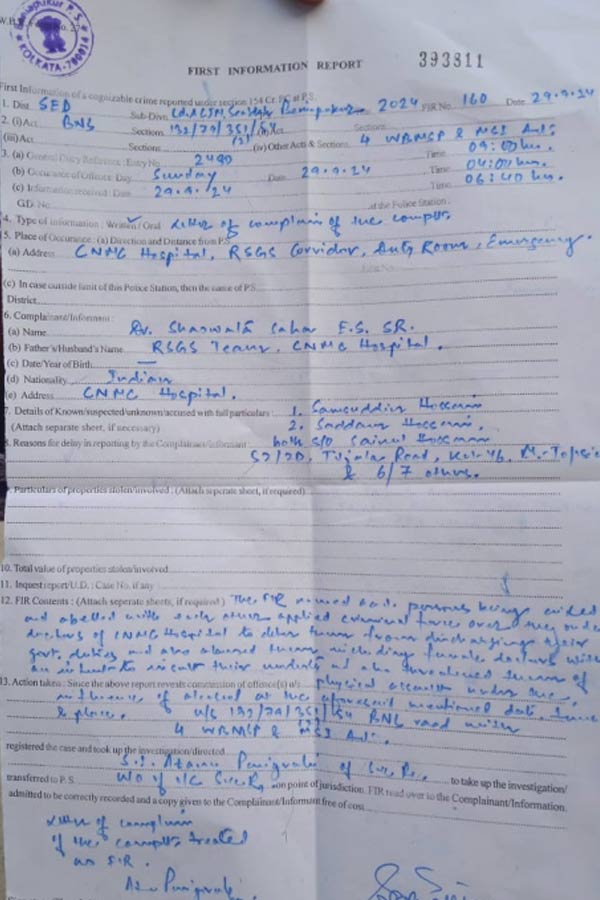 W.B.
Beniapukur P.S.
KOLKATA-700014
FIRST INFORMATION REPORT 393811
First Information of a cognizable crime reported under section 154 Cr. P.C. at P.S.
1. Dist. SED Sub-Divn. Beniapukur 2024 FIR No. 160 Date 29.9.24
2. (i) Act BNS Sections 132/79/351/54 (ii) Act Sections
(iii) Act Sections (iv) Other Acts & Sections 4 WBMSP &
3. (a) General Diary Reference : Entry No. 2490 Time 09:00 hrs.
(b) Occurence of Offence : Day Sunday Date 29.9.24 Time 04:00 hrs.
(c) Information received : Date 29.9.24 Time 06:40 hrs.
G.D. No. at the Police Station :
4. Type of information : Written / Oral Letter of complain of the
5. Place of Occurance : (a) Direction and Distance from P.S.
(a) Address CNMC Hospital, RSGS Corridor, Duty Room, Emergency.
(c) In case outside limit of this Police Station, then the name of P.S.
District
6. Complainant/Informant :
(a) Name Dr.
(b) Father's/Husband's Name RSGS Team, CNMC Hospital.
(c) Date/Year of Birth —
(d) Nationality Indian
(e) Address CNMC Hospital.
7. Details of Known/suspected/unknown/accused with full particulars : 1. Samsuddin Hossain
(Attach separate sheet, if necessary) 2. Saddam Hossain,
8. Reasons for delay in reporting by the Complainant/informant both s/o Hossain
Road, Kol-46,
& 6/7 others.
9. Particulars of properties stolen/involved : (Attach seperate sheet, if required)
10. Total value of properties stolen/involved
11. Inquest report/U.D. : Case No. if any
12. FIR Contents : (Attach seperate sheets, if required) The FIR named persons being aided
and abetted with each other applied criminal force over the
doctors of CNMC Hospital to deter them from discharging their
govt. duties and also them including female doctors with
an to insult their and also threatened them of
13. Action taken : Since the above report reveals commission of offence(s) u/s physical assault under the
influence of alcohol at the aforesaid mentioned date, time
& place. u/s 132/79/351/54 BNS read with
4 WBMSP &
registered the case and took up the investigation/directed
S.I. of to take up the investigation/
transferred to P.S. on point of jurisdiction. FIR read over to the Complainant/Information.
admitted to be correctly recorded and a copy given to the Complainant/Informant free of cost
Letter of complain
of the treated
as FIR.